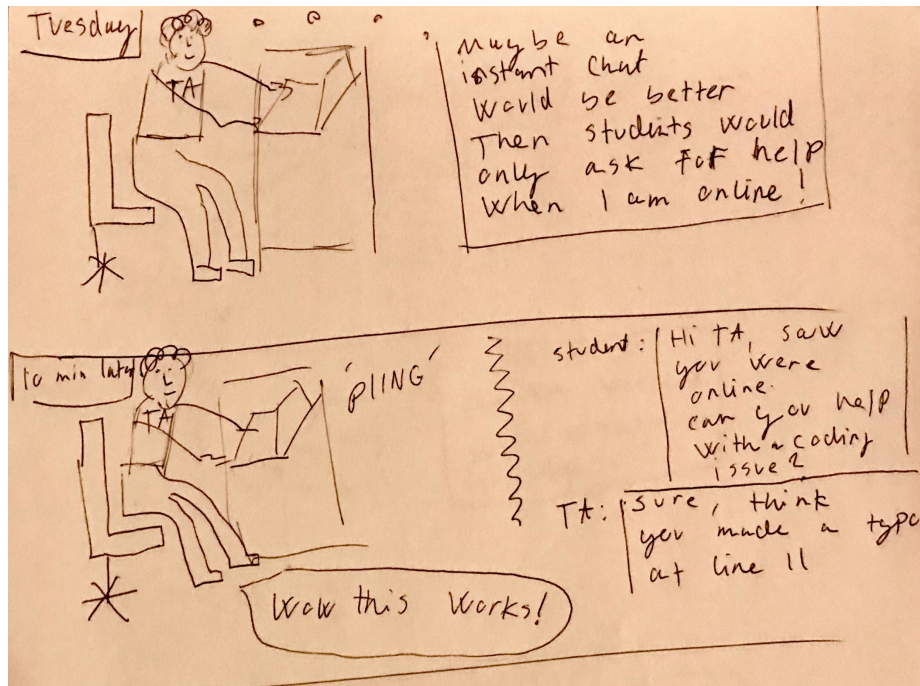 Tuesday
TA
Maybe an
instant chat
would be better
Then students would
only ask for help
when I am online!
10 min later
TA
'PIING'
student:
Hi TA, saw
you were
online.
can you help
with a coding
issue?
TA:
sure, think
you made a typo
at line 11
Wow this works!